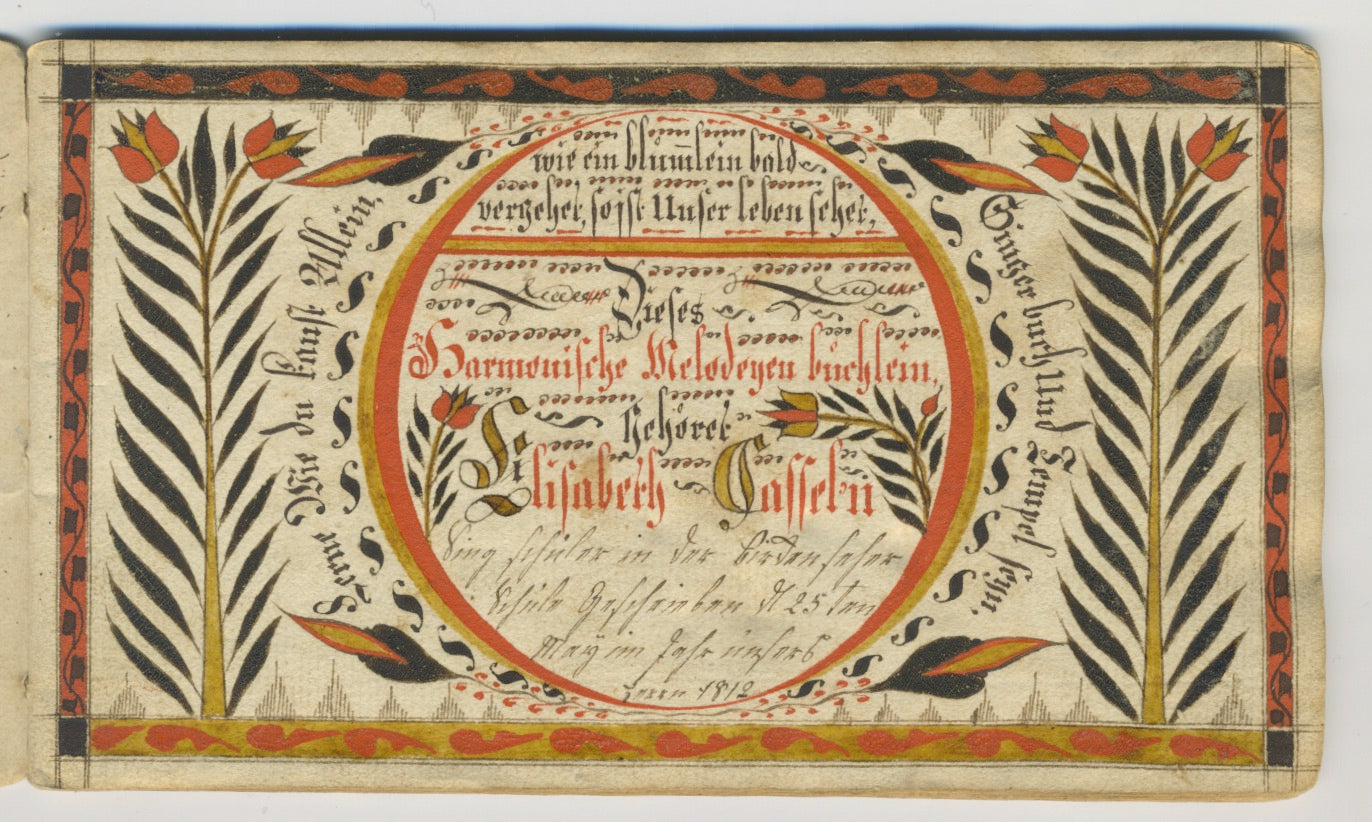 wie ein blümlein bald
vergehet, so ist Unser leben sehet,
Dieses
Harmonische Melodeyen büchlein,
Gehöret
Elisabeth Casselin
Sing schüler in der
Schule Geschrieben d 25ten
May im Jahr unsers
Herrn 1812
Lerne Wie du kanst Allein,
Singer buch Und Tempel seyn.